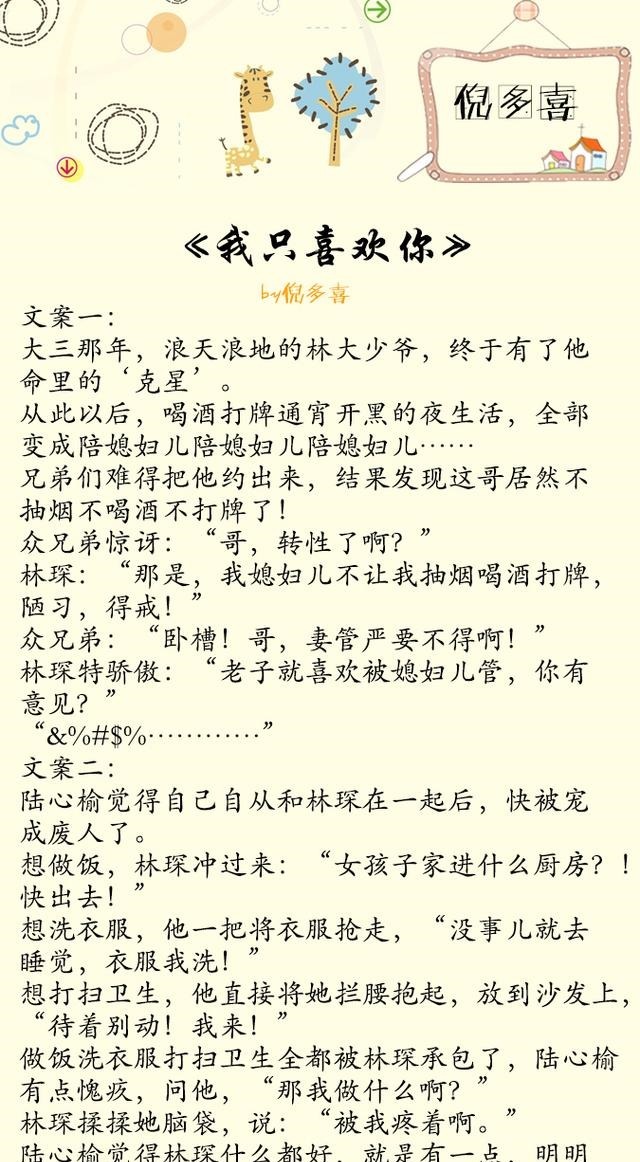 倪多喜
《我只喜欢你》
by倪多喜
文案一：
大三那年，浪天浪地的林大少爷，终于有了他
命里的‘克星’。
从此以后，喝酒打牌通宵开黑的夜生活，全部
变成陪媳妇儿陪媳妇儿陪媳妇儿……
兄弟们难得把他约出来，结果发现这哥居然不
抽烟不喝酒不打牌了！
众兄弟惊讶：“哥，转性了啊？”
林琛：“那是，我媳妇儿不让我抽烟喝酒打牌，
陋习，得戒！”
众兄弟：“卧槽！哥，妻管严要不得啊！”
林琛特骄傲：“老子就喜欢被媳妇儿管，你有
意见？”
“&%#$%…………”
文案二：
陆心榆觉得自己自从和林琛在一起后，快被宠
成废人了。
想做饭，林琛冲过来：“女孩子家进什么厨房？！
快出去！”
想洗衣服，他一把将衣服抢走，“没事儿就去
睡觉，衣服我洗！”
想打扫卫生，他直接将她拦腰抱起，放到沙发上，
“待着别动！我来！”
做饭洗衣服打扫卫生全都被林琛承包了，陆心榆
有点愧疚，问他，“那我做什么啊？”
林琛揉揉她脑袋，说：“被我疼着啊。”
陆心榆觉得林琛什么都好，就是有一点，明明